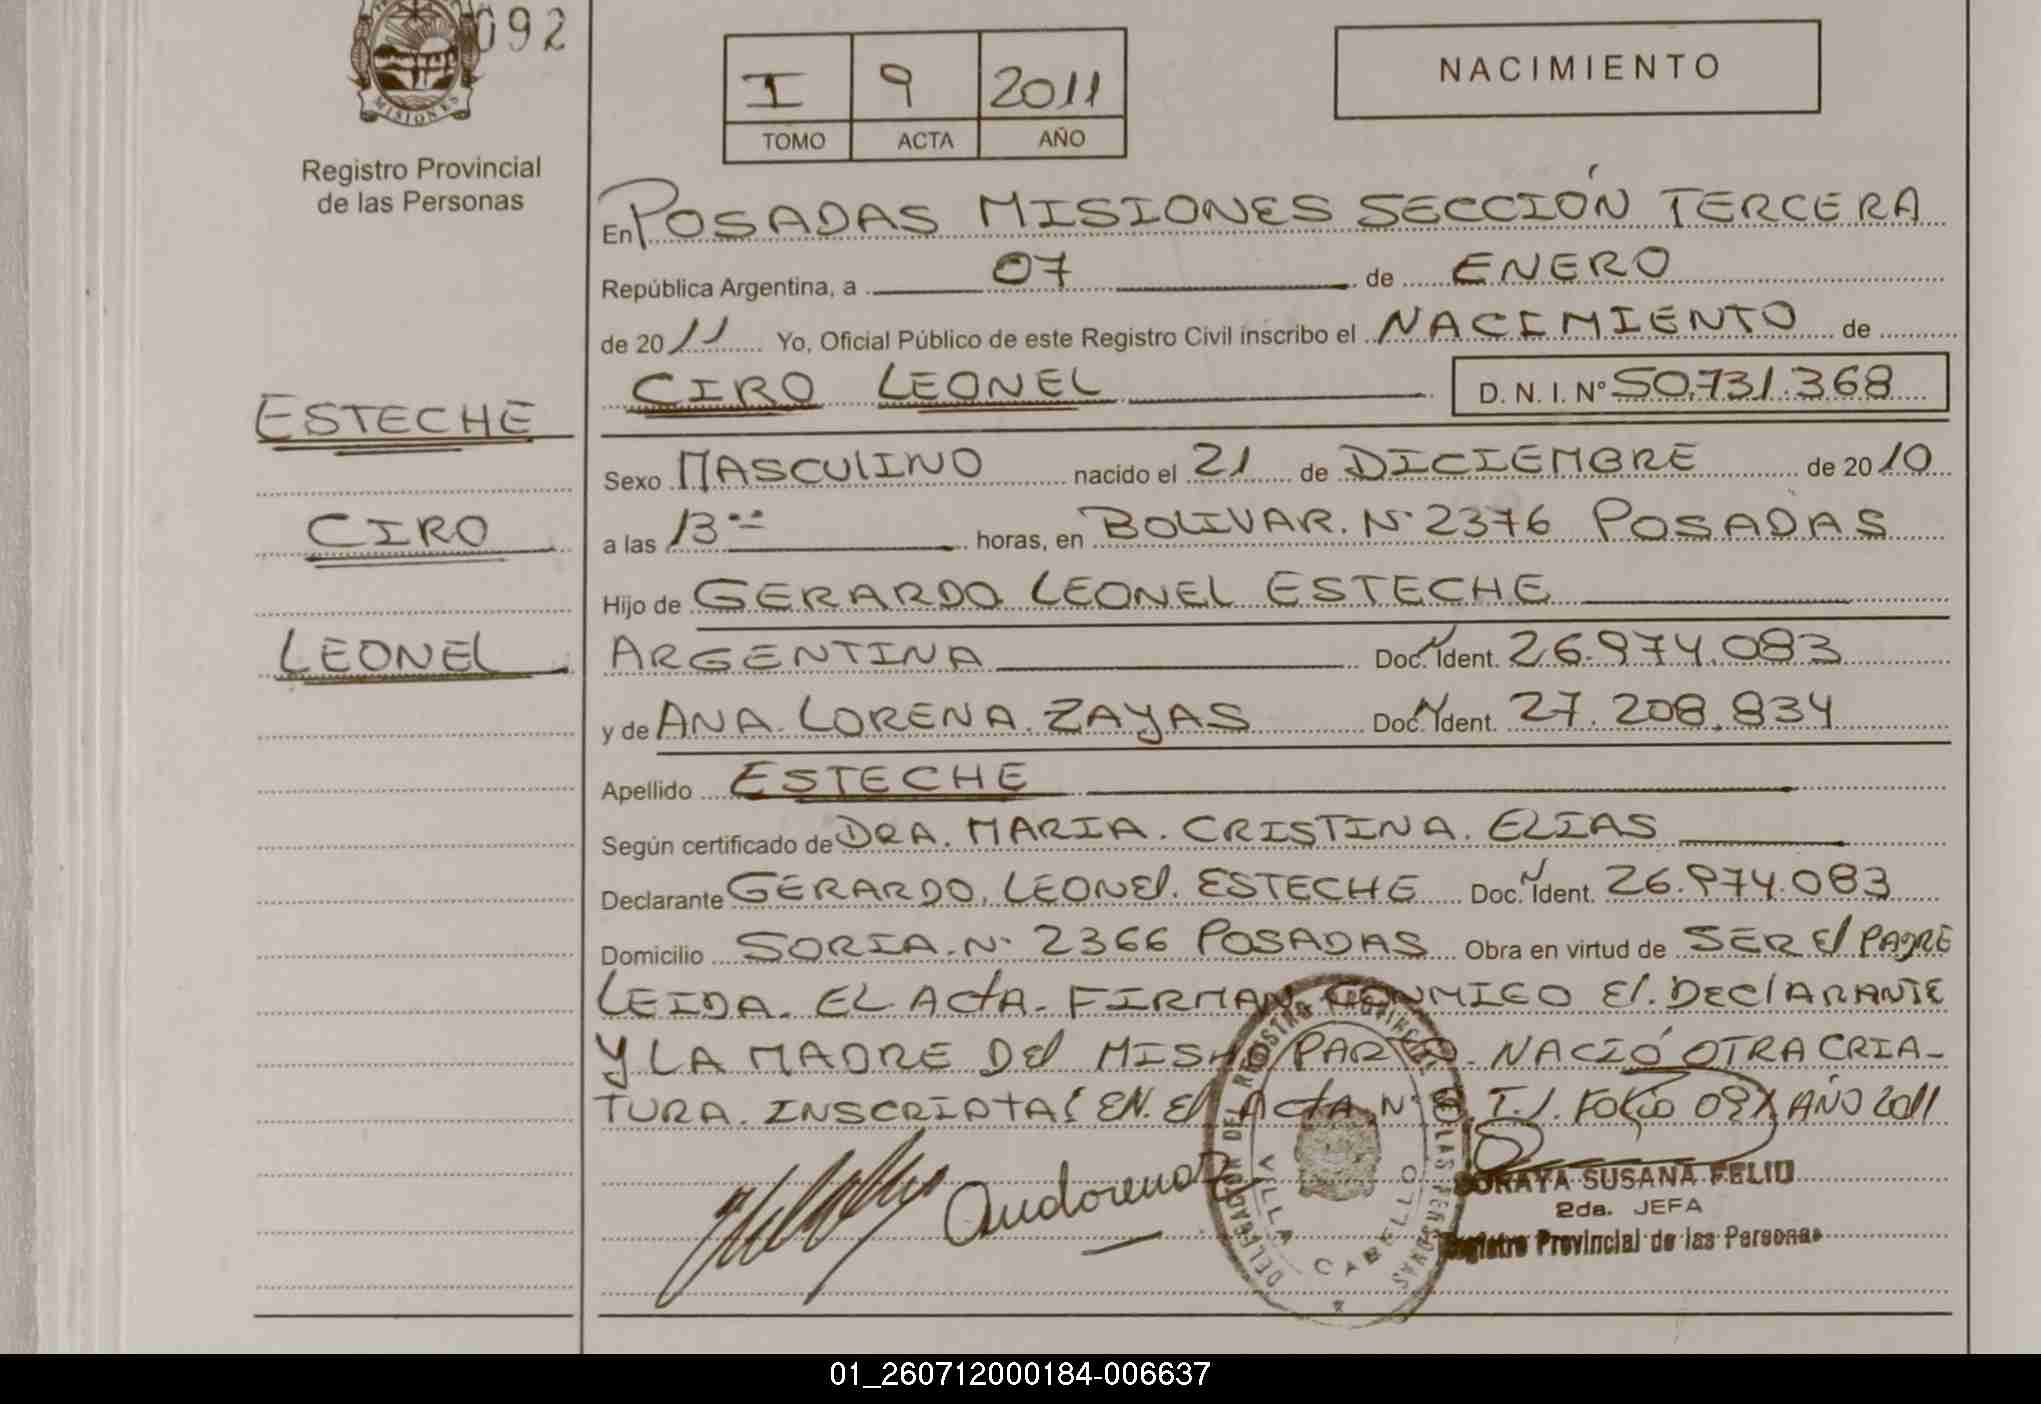 092
MISIONES
Registro Provincial
de las Personas
I 9 2011
TOMO ACTA AÑO
NACIMIENTO
En POSADAS MISIONES SECCIÓN TERCERA
República Argentina, a 07 de ENERO
de 2011 Yo, Oficial Público de este Registro Civil inscribo el NACIMIENTO de
CIRO LEONEL D. N. I. N° 50.731.368
ESTECHE
CIRO
LEONEL
Sexo MASCULINO nacido el 21 de DICIEMBRE de 2010
a las 13 horas, en BOLIVAR. N° 2376 POSADAS
Hijo de GERARDO LEONEL ESTECHE
ARGENTINA Doc. Ident. 26.974.083
y de ANA. LORENA. ZAYAS Doc. Ident. 27.208.834
Apellido ESTECHE
Según certificado de DRA. MARIA. CRISTINA. ELIAS
Declarante GERARDO. LEONEL. ESTECHE Doc. Ident. 26.974.083
Domicilio SORIA. N° 2366 POSADAS Obra en virtud de SER El PADRE
LEIDA. EL ActA. FIRMAN CONMIGO El. DEClARANTE
Y LA MADRE DEl MISMO PARTO. NACIÓ OTRA CRIA-
TURA. INSCRIPTA EN. El ActA N° T. I. FOLIO AÑO 2011
DELEGACION DEL REGISTRO PROVINCIAL DE LAS PERSONAS
VILLA CABELLO
SORAYA SUSANA FELIU
2da. JEFA
Registro Provincial de las Personas
01_260712000184-006637